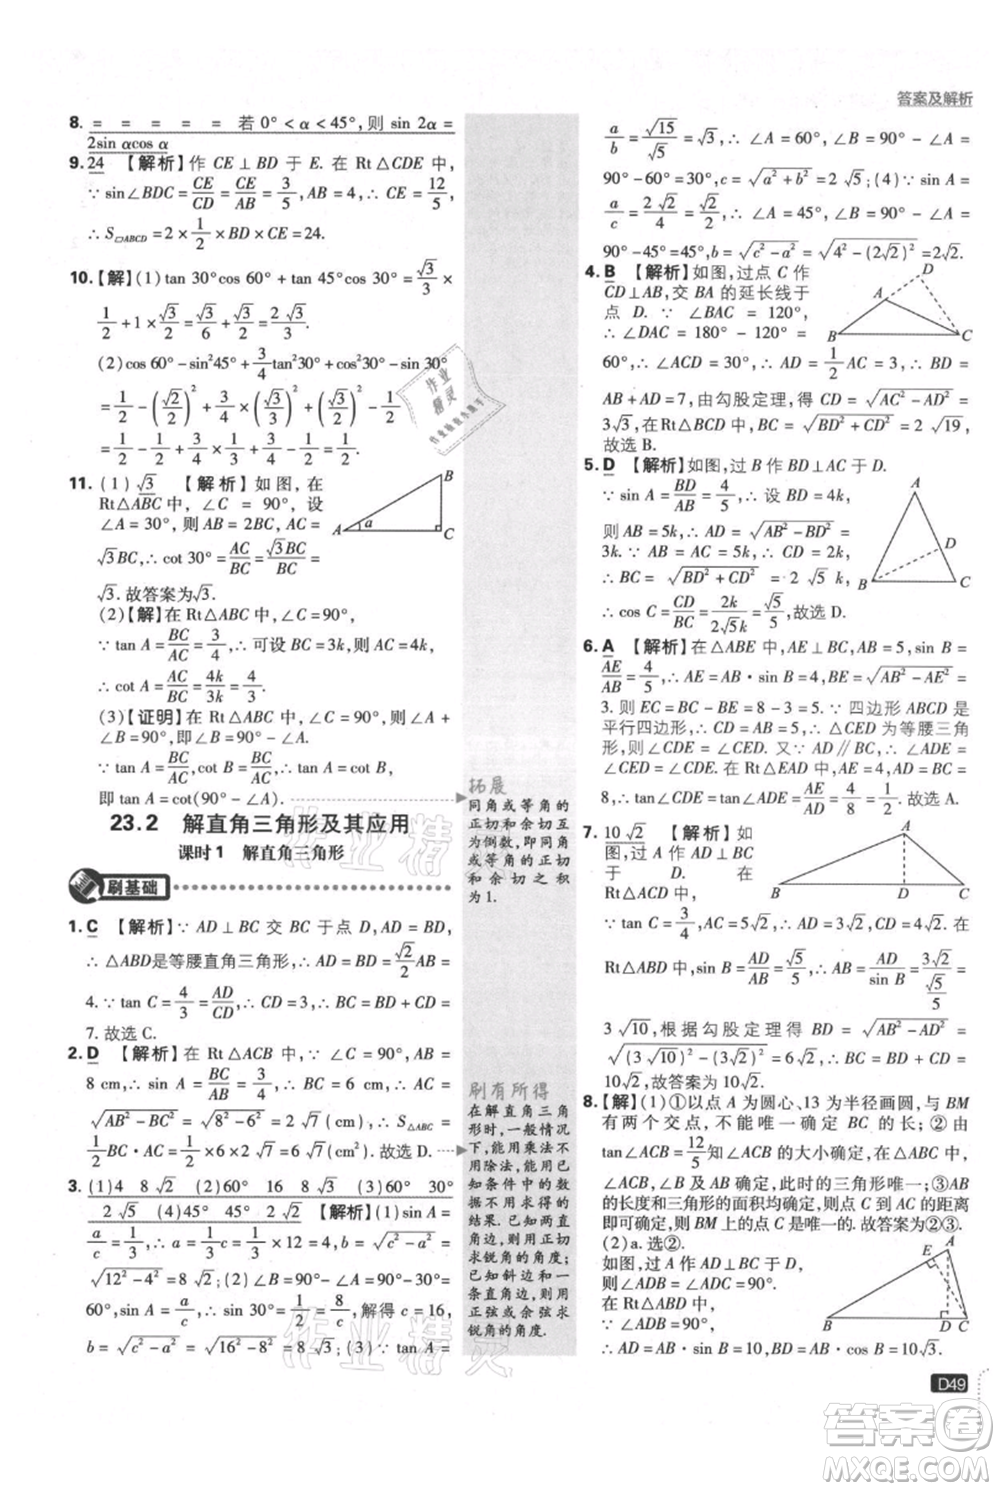 答案及解析
8. = = = = = 若 0° < α < 45°, 则 sin 2α =
2sin αcos α
9. 24 【解析】作 CE ⊥ BD 于 E. 在 Rt△CDE 中,
∵ sin∠BDC = CE/CD = CE/AB = 3/5, AB = 4, ∴ CE = 12/5,
∴ S▱ABCD = 2 × 1/2 × BD × CE = 24.
10. 【解】(1) tan 30°cos 60° + tan 45°cos 30° = √3/3 ×
1/2 + 1 × √3/2 = √3/6 + √3/2 = 2√3/3.
(2) cos 60° − sin²45° + 3/4 tan²30° + cos²30° − sin 30°
= 1/2 − (√2/2)² + 3/4 × (√3/3)² + (√3/2)² − 1/2
= 1/2 − 1/2 + 1/4 + 3/4 − 1/2 = 1/2.
11. (1) √3 【解析】如图, 在
Rt△ABC 中, ∠C = 90°, 设
∠A = 30°, 则 AB = 2BC, AC =
√3BC, ∴ cot 30° = AC/BC = √3BC/BC =
√3. 故答案为√3.
(2)【解】在 Rt△ABC 中, ∠C = 90°,
∵ tan A = BC/AC = 3/4, ∴ 可设 BC = 3k, AC = 4k,
∴ cot A = AC/BC = 4k/3k = 4/3.
(3)【证明】在 Rt△ABC 中, ∵ ∠C = 90°, ∴ ∠A +
∠B = 90°. ∵ tan A = BC/AC, cot B = BC/AC, ∴ tan A = cot B,
即 tan A = cot(90° − ∠A).
23.2 解直角三角形及其应用
课时1 解直角三角形
刷基础
1. C 【解析】∵ AD ⊥ BC 交 BC 于点 D, AD = BD,
∴ △ABD是等腰直角三角形, ∴ AD = BD = √2/2 AB =
4. ∵ tan C = 4/3 = AD/CD, ∴ CD = 3, ∴ BC = BD + CD =
7. 故选 C.
2. D 【解析】在 Rt△ACB 中, ∵ ∠C = 90°, AB =
8 cm, ∴ sin A = BC/AB = 3/4, ∴ BC = 6 cm, ∴ AC =
√(AB² − BC²) = √(8² − 6²) = 2√7 (cm), ∴ S△ABC =
1/2 BC · AC = 1/2 × 6 × 2√7 = 6√7 (cm²). 故选 D.
3. (1)4 8√2 (2)60° 16 8√3 (3)60° 30°
2√5 (4)45° 45° 2√2 【解析】(1) sin A =
a/c = 1/3, ∴ a = 1/3 c = 1/3 × 12 = 4, b = √(c² − a²) =
√(12² − 4²) = 8√2; (2) ∠B = 90° − ∠A = 90° − 30° =
60°, ∴ sin A = a/c, ∴ sin 30° = 1/2 = 8/c, 解得 c = 16,
b = √(c² − a²) = √(16² − 8²) = 8√3; (3) tan A =
拓展
同角或等角的
正切和余切互
为倒数, 即同角
或等角的正切
和余切之积
为1.
刷有所得
在解直角三角
形时, 一般情况
下, 能用乘法不
用除法, 能用已
知条件中的数
据不用求得的
结果. 已知两直
角边, 用正切求
锐角的角度.
已知斜边和一
条直角边, 则用
正弦或余弦求
锐角的角度.
a/b = √15/√5 = √3, ∴ ∠A = 60°, ∴ ∠B = 90° − ∠A =
90° − 60° = 30°, c = √(a² + b²) = 2√5; (4) ∵ sin A =
a/c = 2√2/4 = √2/2, ∴ ∠A = 45°, ∴ ∠B = 90° − ∠A =
90° − 45° = 45°, b = √(c² − a²) = √(4² − (2√2)²) = 2√2.
4. B 【解析】如图, 过点 C 作
CD⊥AB, 交 BA 的延长线于
点 D. ∵ ∠BAC = 120°,
∴ ∠DAC = 180° − 120° =
60°, ∴ ∠ACD = 30°, ∴ AD = 1/2 AC = 3, ∴ BD =
AB + AD = 7, 由勾股定理, 得 CD = √(AC² − AD²) =
3√3, ∴ 在 Rt△BCD 中, BC = √(BD² + CD²) = 2√19,
故选 B.
5. D 【解析】如图, 过 B 作 BD⊥AC 于 D.
∵ sin A = BD/AB = 4/5, ∴ 设 BD = 4k,
则 AB = 5k, ∴ AD = √(AB² − BD²) =
3k. ∵ AB = AC, ∴ CD = 2k,
∴ BC = √(BD² + CD²) = 2√5k,
∴ cos C = CD/BC = 2k/2√5k = √5/5, 故选 D.
6. A 【解析】在△ABE 中, AE⊥BC, AB = 5, sin B =
AE/AB = 4/5, ∴ AE = AB · sin B = 4, BE = √(AB² − AE²) =
3. ∴ EC = BC − BE = 8 − 3 = 5. ∵ 四边形 ABCD 是
平行四边形, ∴ CD = AB = 5, ∴ △CED 为等腰三角
形, ∴ ∠CDE = ∠CED. ∵ AD∥BC, ∴ ∠ADE =
∠CED = ∠CDE. 在 Rt△EAD 中, AE = 4, AD =
BC = 8, ∴ tan∠CDE = tan∠ADE = AE/AD = 4/8 = 1/2, 故选A.
7. 10√2 【解析】如图, 过 A
作 AD⊥BC, 垂足为 D. 在
Rt△ACD 中, ∵ AC = 5,
tan C = 3/4, ∴ AD = 3√2, CD = 4√2. 在
Rt△ABD 中, sin B = AD/AB = √5/5, ∴ AB = AD/sin B = 3√2/(√5/5) =
3√10, 根据勾股定理得 BD = √(AB² − AD²)
= √((3√10)² − (3√2)²) = 6√2, ∴ BC = BD + CD =
6√2 + 4√2 = 10√2, 故答案为 10√2.
8. 【解】(1)①以点A为圆心、13 为半径画圆, 与 BM
有两个交点, 不能唯一确定 BC 的长; ②由
tan∠ACB = 12/5 知∠ACB 的大小确定, 在△ABC 中,
∠ACB, ∠B 及 AB 确定, 此时的三角形唯一; ③AB
的长度和三角形的面积均确定, 则点 C 到 AC 的距离
即可确定, 则 BM 上的点 C 是唯一的. 故答案为②③.
(2) a. 选②.
如图, 过点 A 作 AD⊥BC 于 D,
则∠ADB = ∠ADC = 90°. 在
Rt△ABD 中, ∵ ∠B = 30°,
∴ AD = 1/2 AB = 10, BD = AB · cos B = 10√3.
D49
答案圈
MXQE.COM